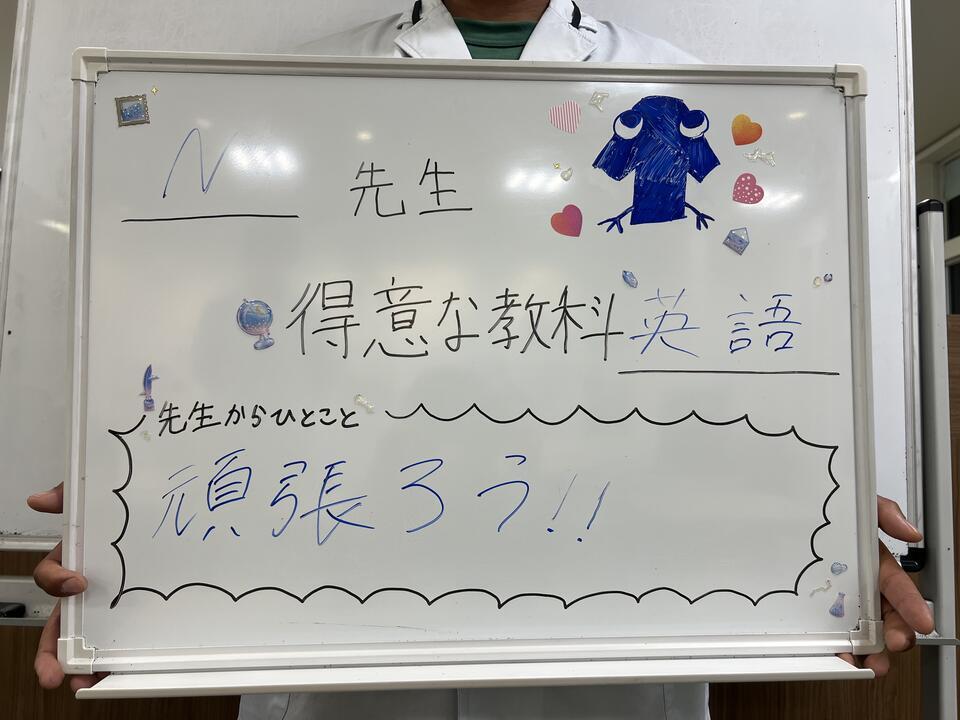 N 先生
得意な教科 英語
先生からひとこと
頑張ろう!!